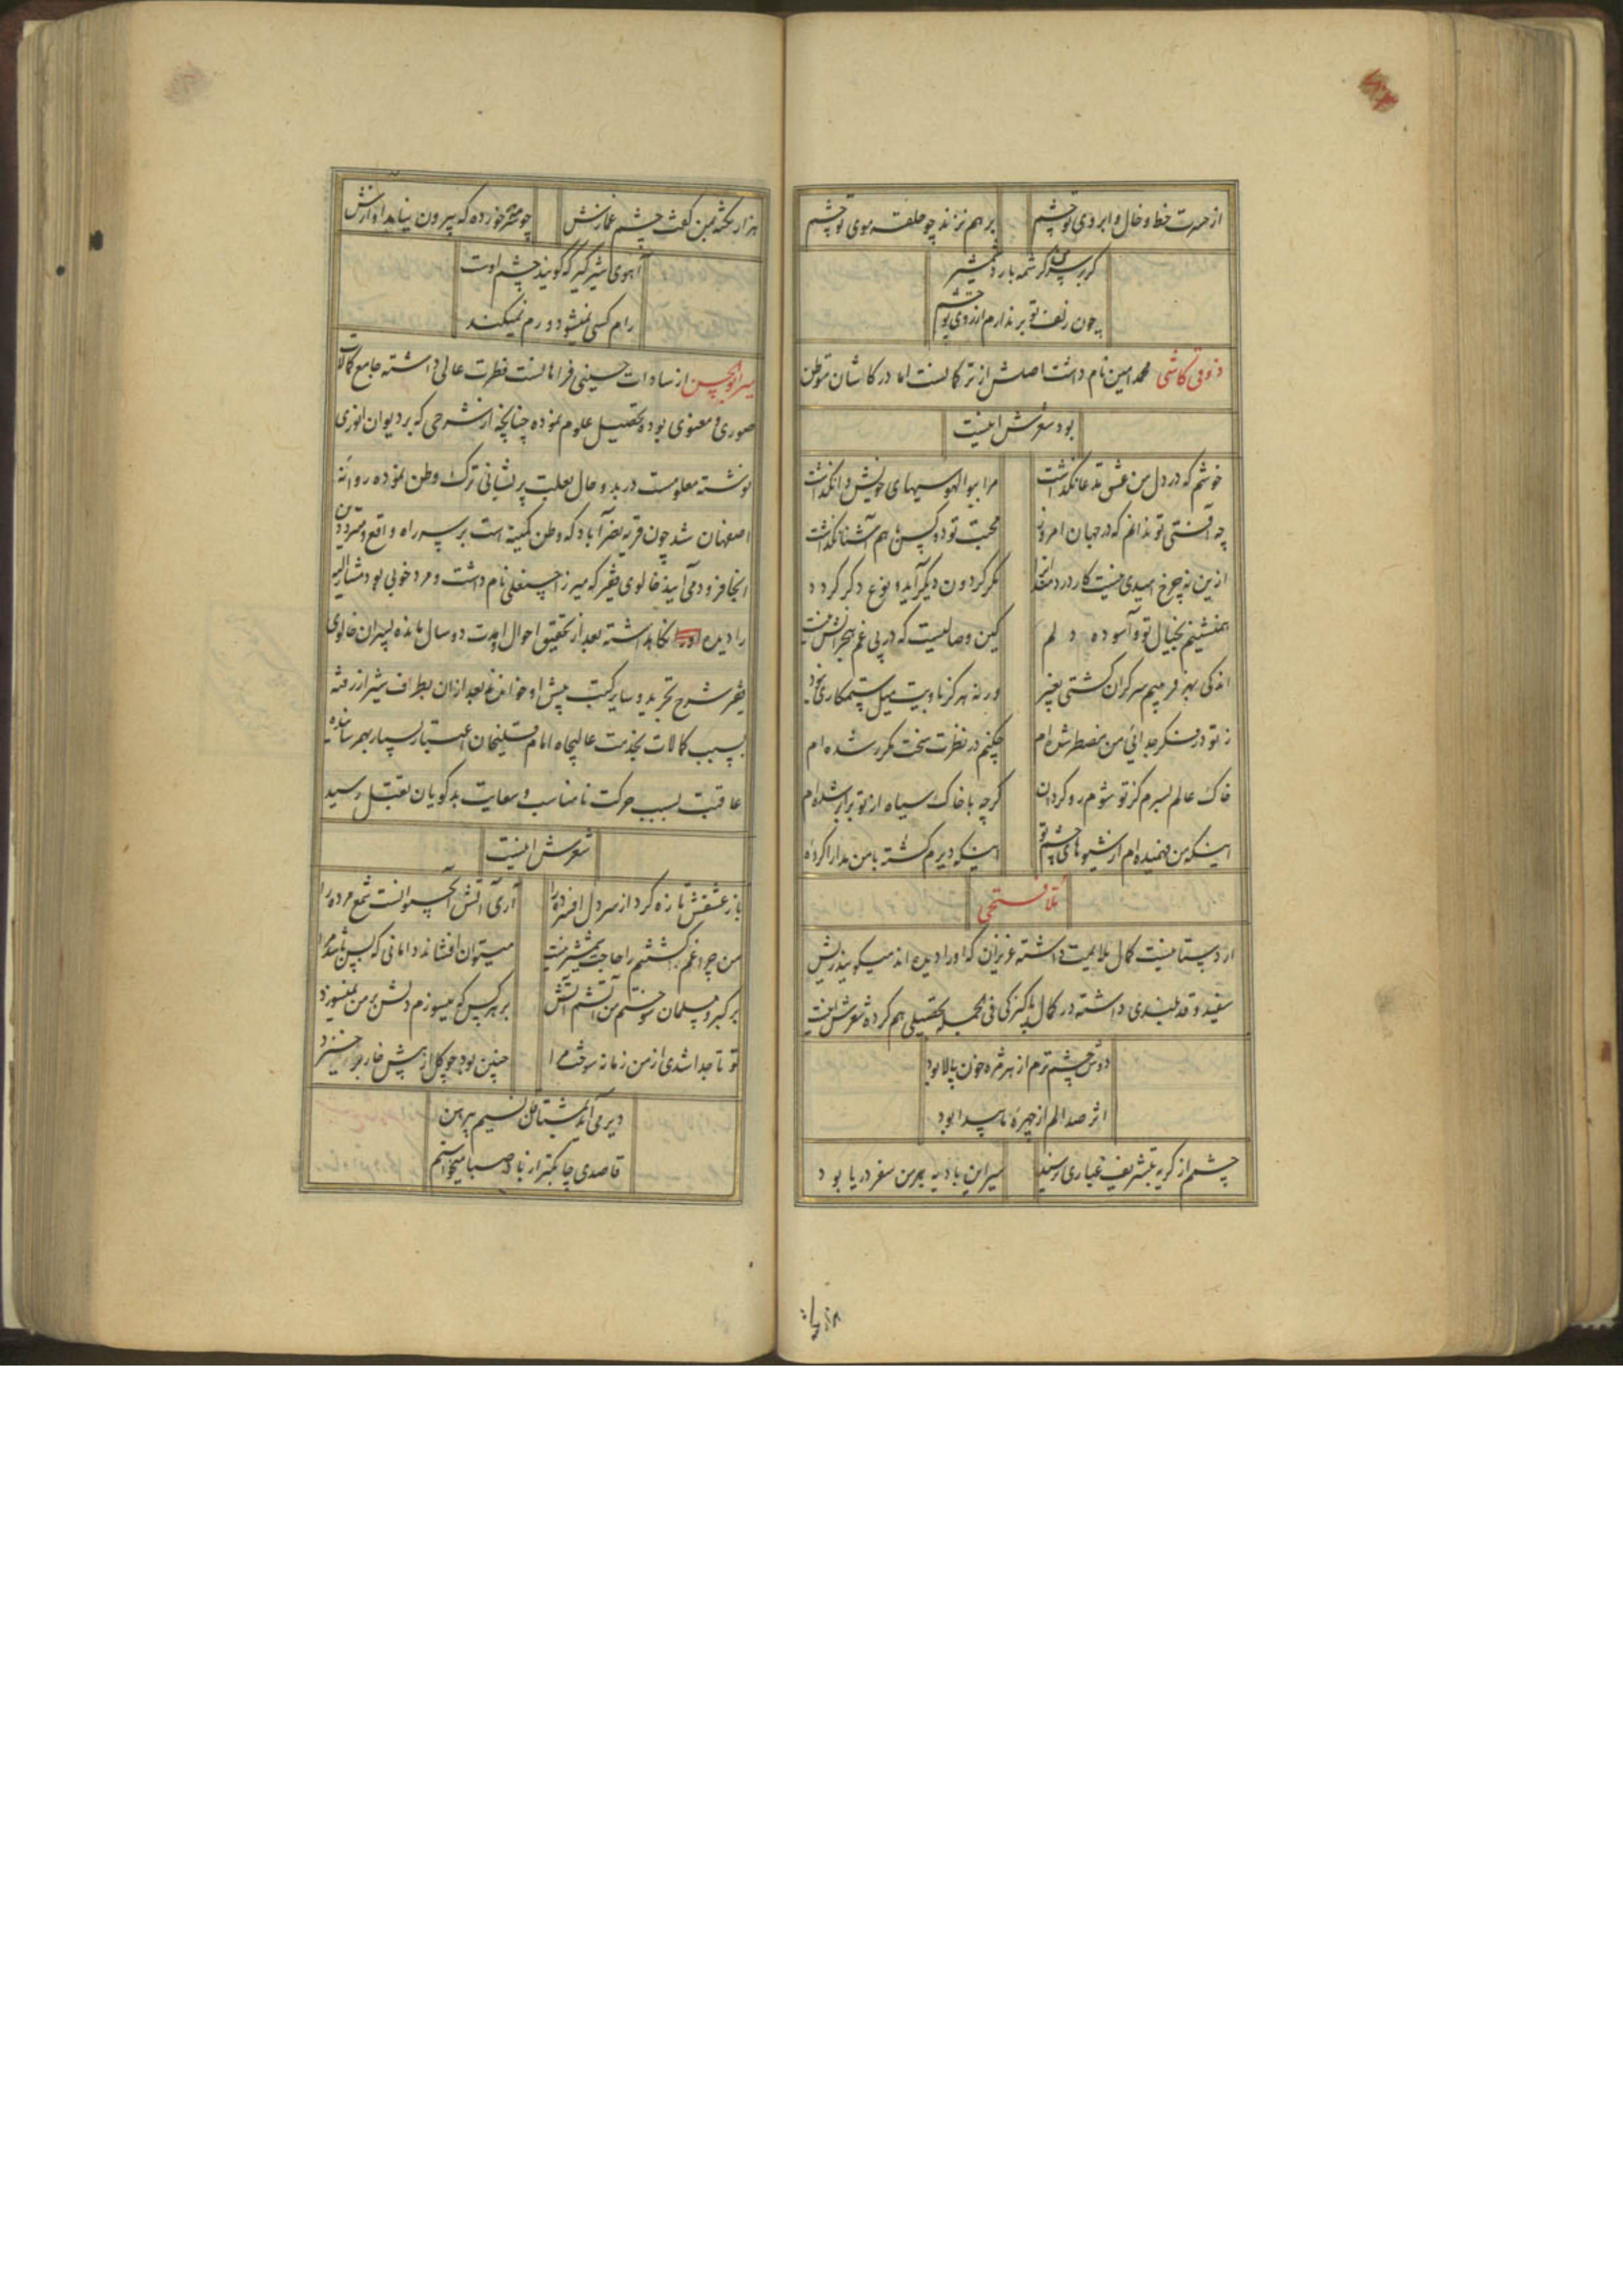 از حسرت خط و خال و ابروی تو چشم
بر هم نزند چو حلقه موی تو چشم
گر بر سر من کرشمه بارد شمشیر
چون زلف تو بر ندارم از روی تو چشم
ذوقی کاشی محمد امین نام داشت اصلش از ترکانست اما در کاشان متوطن
بود شعرش اینست
خوشم که در دل من عشق مدعا نگذاشت
مرا ببوالهوسیهای خویش وا نگذاشت
چه آفتی تو ندانم که در جهان امروز
محبت تو دو کس را بهم آشنا نگذاشت
ازین نه چرخ امیدی نیست کار دردمندانرا
مگر گردون دیگر آید و نوع دگر گردد
همنشینم بخیال تو و آسوده دلم
کین وصالیست که در پی غم هجرانش نیست
اندکی بهر فریبم سرگران گشتی بغیر
ورنه هرگز با ویت میل ستمکاری نبود
ز تو در فکر جدائی من مضطر شده‌ام
چکنم در نظرت سخت مکرر شده‌ام
خاک عالم بسرم کز تو شوم رو گردان
گرچه با خاک سیاه از تو برابر شده‌ام
اینکه من فهمیده‌ام از شیوهای چشم تو
اینکه دیرم کشته با من مدارا کرده
ملا فتحی
اردستانیست کمال ملایمیت داشته عزیزان که او را دیده‌اند میگویند ریش
سفید و قد بلندی داشته در کمال پاکیزگی فی الجمله تحصیلی هم کرده شعرش اینست
دوش چشم ترم از هر مژه خون پالا بود
اثر صد الم از چهره ما پیدا بود
چشم از گریه بتشریف غباری نرسید
سیر این بادیه بر من سفر دریا بود
هزار نکته بمن گفت چشم غمازش
چو سرمه خورده که بیرون نیاید آوازش
آهوی شیرگیر که گویند چشم اوست
رام کسی نمیشود و رم نمیکند
میر ابوالحسن از سادات حسینی فراهانست فطرت عالی داشته جامع کمالات
صوری و معنوی بوده تحصیل علوم نموده چنانچه از شرحی که بر دیوان انوری
نوشته معلومست در بدو حال بعلت پریشانی ترک وطن نموده روانه
اصفهان شد چون قریه نصرآباد که وطن کمینه است بر سر راه واقع و مترددین
آنجا فرود می‌آیند خالوی فقیر که میرزا حسنعلی نام داشت و مرد خوبی بود مشارالیه
را دیده نگاهداشته بعد از تحقیق احوال او مدت دو سال مانده پسران خالوی
فقیر شرح تجرید و سایر کتب پیش او خواندند بعد از آن بطرف شیراز رفته
بسبب کمالات بخدمت عالیجاه امام قلیخان اعتبار بسیار بهم رسانده
عاقبت بسبب حرکت نامناسب و سعایت بدگویان بقتل رسید
شعرش اینست
باز عشقش تازه کرد از سر دل افسرده را
آری آتش آب حیوانست شمع مرده را
من چراغم کشتنم را حاجت شمشیر نیست
میتوان افشاند دامانی که بس باشد مرا
بر گبر و مسلمان سوختم من آتشم آتش
بر هر کس که میسوزم دلش بر من نمیسوزد
تو تا جدا شدی از من زمانه سوخت مرا
چنین بود چو گل از پیش خار برخیزد
دیر می‌آید بمشتاقان نسیم پیرهن
قاصدی چابکتر از باد صبا میخواستم